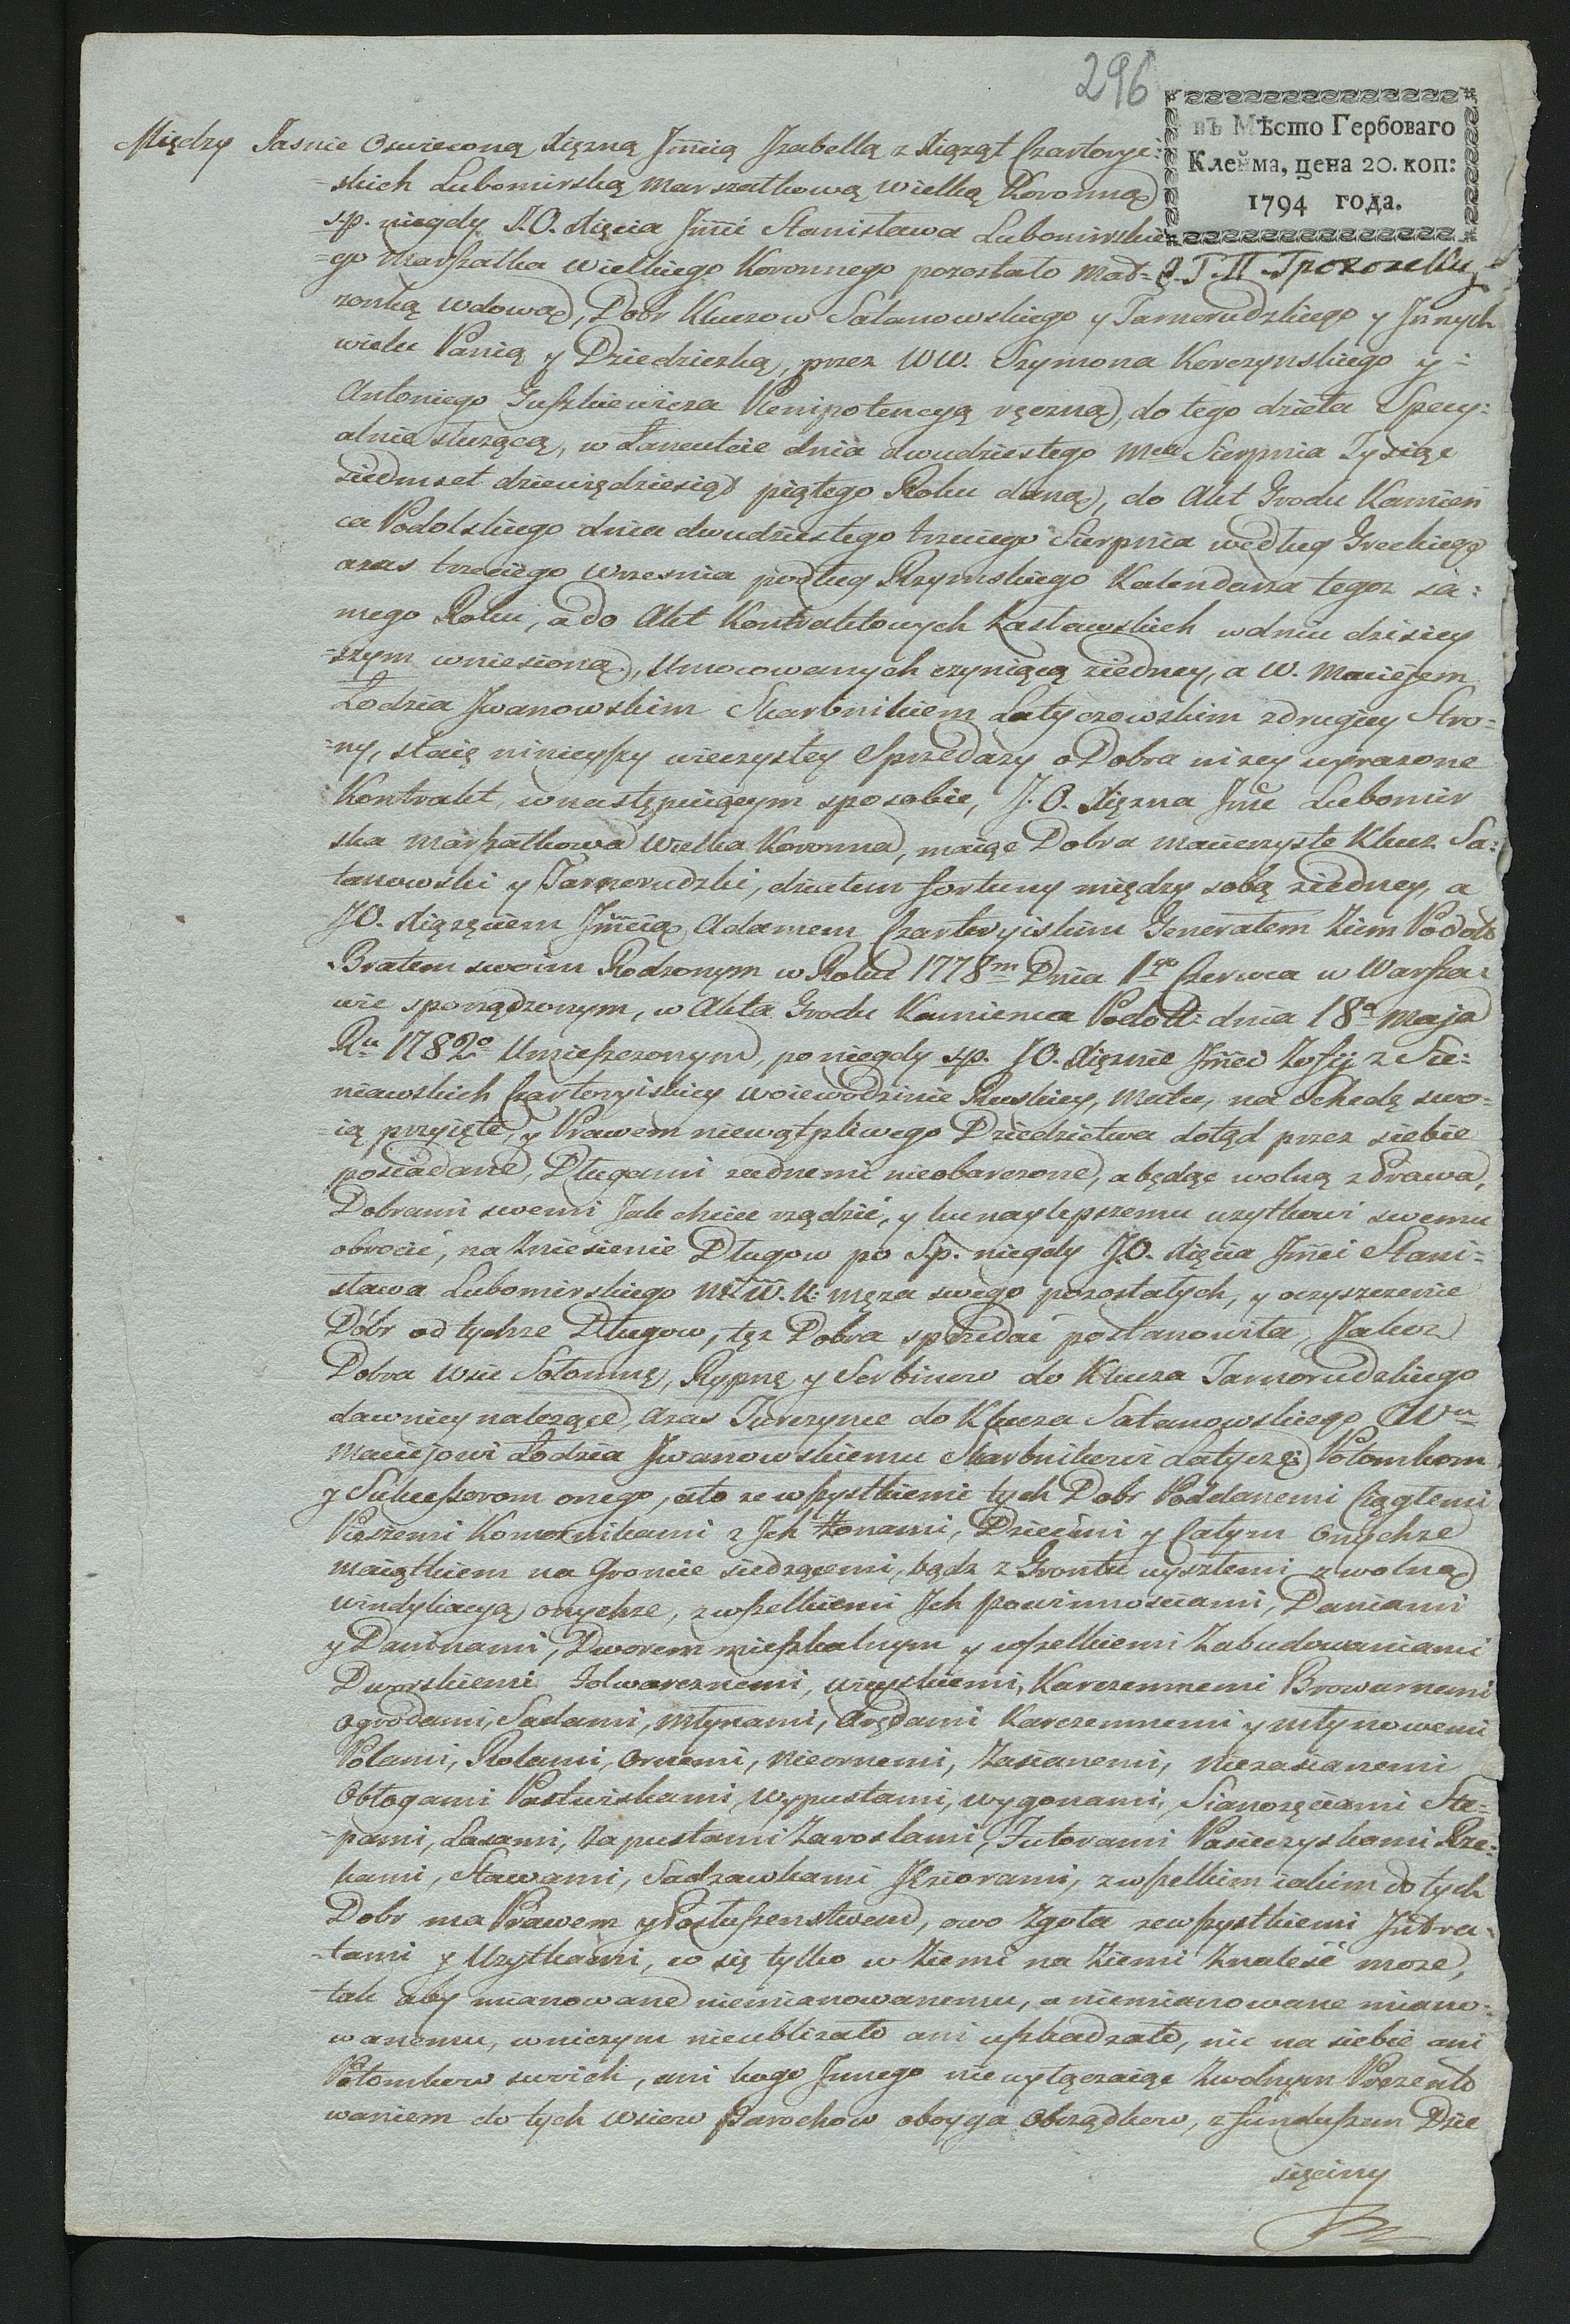 296
въ Мѣсто Гербоваго
Клейма, цена 20. коп:
1794 года.
Między Jasnie Oswieconą Xięzną Jmcią Jzabellą z Xiąząt Czartoryi:
=skich Lubomirską Marszałkową Wielką Koronną
s.p. niegdy J.O. Xięcia Jmci Stanisława Lubomirskie
=go Marszałka Wielkiego Koronnego pozostało Mał=
zonką wdową, Dobr Kluczow Satanowskiego y Tarnorudzkiego y Jnnych
wielu Panią y Dziedziczką, przez WW. Szymona Korczynskiego y=
Antoniego Juszkiewicza Plenipotencyą ręczną, do tego dzieła Specy:
alnie słuzącą, w Łancucie dnia dwudziestego Mca Sierpnia Tysiąc
siedmset dziewiędziesiąt piątego Roku daną, do Akt Grodu Kamień
ca Podolskiego dnia dwudziestego trzeciego Sierpnia według Greckiego
azas trzeciego Wrzesnia podług Rzymskiego Kalendarza tegoz sa:
mego Roku, a do Akt Kontraktowych Zasławskich w dniu dzisiey
=szym wniesioną, Umocowanych czyniącą z iedney, a W. Maciejem
Łodzia Jwanowskim Skarbnikiem Latyczowskim z drugiey Stro=
=ny, staie ninieyszy wieczystey Sprzedazy o Dobra nizey wyrazone
Kontrakt, w następuiącym sposobie, J.O. Xięzna Jmc Lubomir
ska Marszałkowa Wielka Koronna, maiąc Dobra macierzyste Klucz Sa:
tanowski y Tarnorudzki, działem fortuny między sobą z iedney, a
JO. Xiązęciem Jmcią Adamem Czartoryiskim Generałem Ziem Podol
Bratem swoim Rodzonym w Roku 1778m Dnia 1go Czerwca w Warsza:
wie sporządzonym, w Akta Grodu Kamienca Podol: dnia 18a Maja
Ru 1782o Umieszczonym, po niegdy s.p. JO. Xięznie Jmci Zofij z Sie:
niawskich Czartoryiskiey Woiewodzinie Ruskiey, Matce, na Schedę swo=
=ią przyięte, y Prawem niewątpliwego Dziedzictwa dotąd przez siebie
posiadane, Długami zadnemi nieobarczone, a będąc wolną z Prawa,
Dobrami swemi Jak chciec rządzić, y ku naylepszemu uzytkowi swemu
obrocić, na Zniesienie Długow po S.p. niegdy J.O. Xięcia Jmci Stani=
sława Lubomirskiego M.W.K: męza swego pozostałych, y oczyszczenie
Dóbr od tychze Długow, tęz Dobra sprzedać postanowiła, Jakoz
Dobra Wsie Sołomnę, Rypnę y Serbinow do Klucza Tarnorudzkiego
dawniey nalezące, azas Jurczynce do Klucza Satanowskiego Wu
Maciejowi Łodzia Jwanowskiemu Skarbnikowi Latycze: Potomkom
y Sukcessorom onego, a to ze wszystkiemi tych Dobr Poddanemi Ciągłemi
Pieszemi Komornikami z Jch Zonami, Dziećmi y Całym Onychze
maiątkiem na Groncie siedzącemi, bądz z Grontu wyszłemi z wolną
windykacyą onychze, z wszelkiemi Jch powinnosciami, Daniami
y Daninami, Dworem mieszkalnym y wszelkiemi Zabudowaniami
Dworskiemi Folwarcznemi, wieyskiemi, Karczemnemi Browarnemi
Ogrodami, Sadami, młynami, Arędami Karczemnemi y młynowemi
Polami, Rolami, Ornemi, Nieornemi, Zasianemi, Niezasianemi
Obłogami Pastwiskami, Wypustami, wygonami, Sianozęciami Ste=
=pami, Lasami, Zapustami Zaroslami, Futorami Pasieczyskami Rze=
kami, Stawami, Sadzawkami Jeziorami, z wszelkim iakim do tych
Dobr ma Prawem y Posłuszenstwem, owo Zgoła ze wszystkiemi Jntra=
=tami y Uzytkami, co się tylko w Ziemi na Ziemi Znalesć moze,
tak aby mianowane niemianowanemu, a niemianowane miano=
wanemu, w niczym nieublizało ani uszkadzało, nic na siebie ani
Potomkow swoich, ani kogo Jnnego niewyłączaiąc Zwolnym Prezento
waniem do tych Wsiow Parochow oboyga Obrządkow, z funduszem Dzie
sięciny